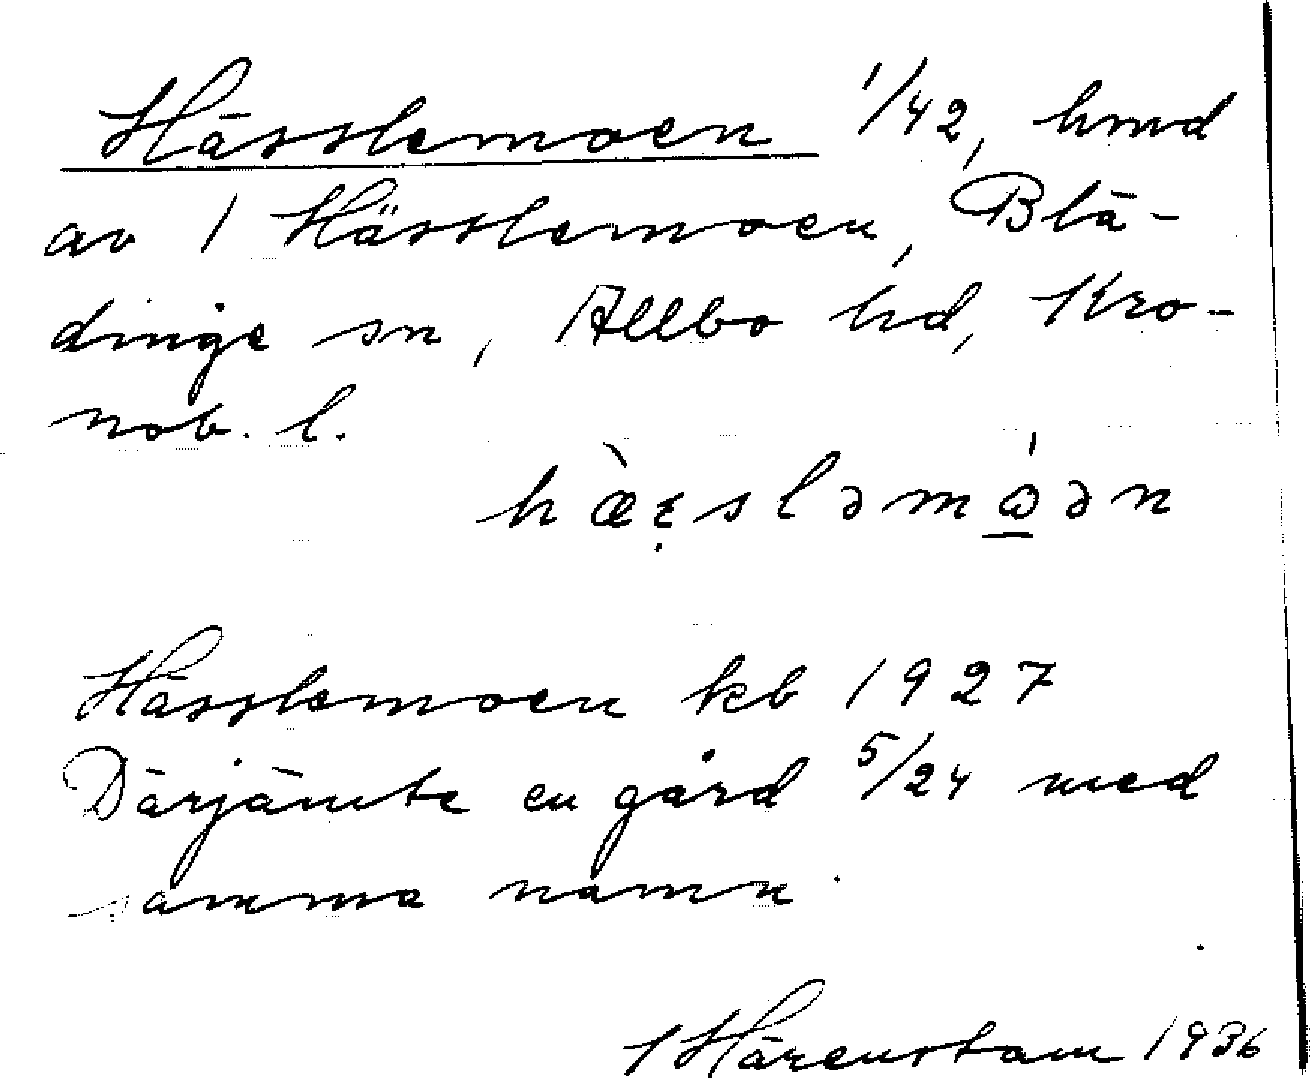 Hässlemoen 1/42, hmd
av 1 Hässlemoen, Blä-
dinge sn, Allbo hd, Kro-
nob. l.
hæ̀ꜫ̣sləmώ̲ən
Hässlemoen kb 1927
Därjämte en gård 5/24 med
samma namn.
Härenstam 1936